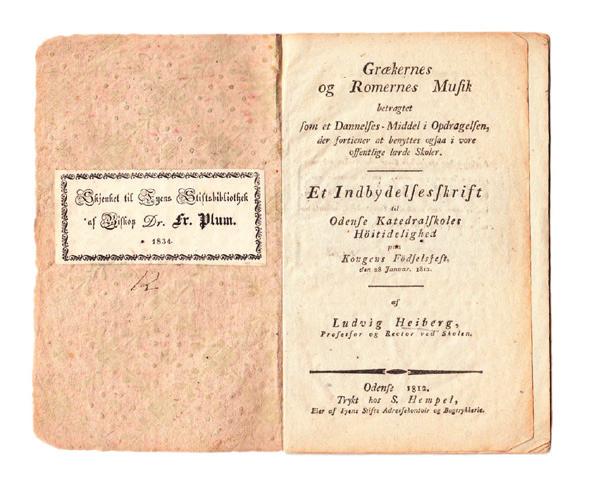 Skjenket til Fyens Stiftsbibliothek
af Biskop Dr. Fr. Plum.
* 1834.
R
Grækernes
og Romernes Muſik
betragtet
ſom et Dannelſes-Middel i Opdragelſen,
der fortiener at benyttes ogſaa i vore
offentlige lærde Skoler.
Et Indbydelſesſkrift
til
Odenſe Katedralſkoles
Höitidelighed
paa
Kongens Födſelsfeſt,
den 28 Januar. 1812.
af
Ludvig Heiberg,
Profeſſor og Rector ved Skolen.
Odenſe 1812.
Trykt hos S. Hempel,
Eier af Fyens Stifts Adreſſekontoir og Bogtrykkerie.